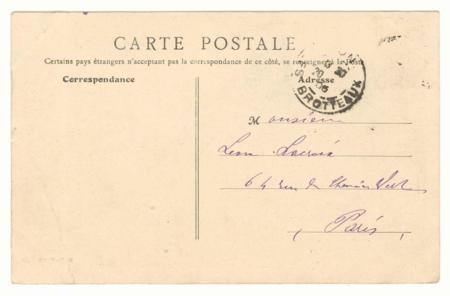 CARTE POSTALE
Certains pays étrangers n'acceptant pas la correspondance de ce côté, se renseigner à la Poste
Correspondance
Adresse
BROTTEAUX
Monsieur
Leon Lacroix
64 rue du Chemin Vert
Paris